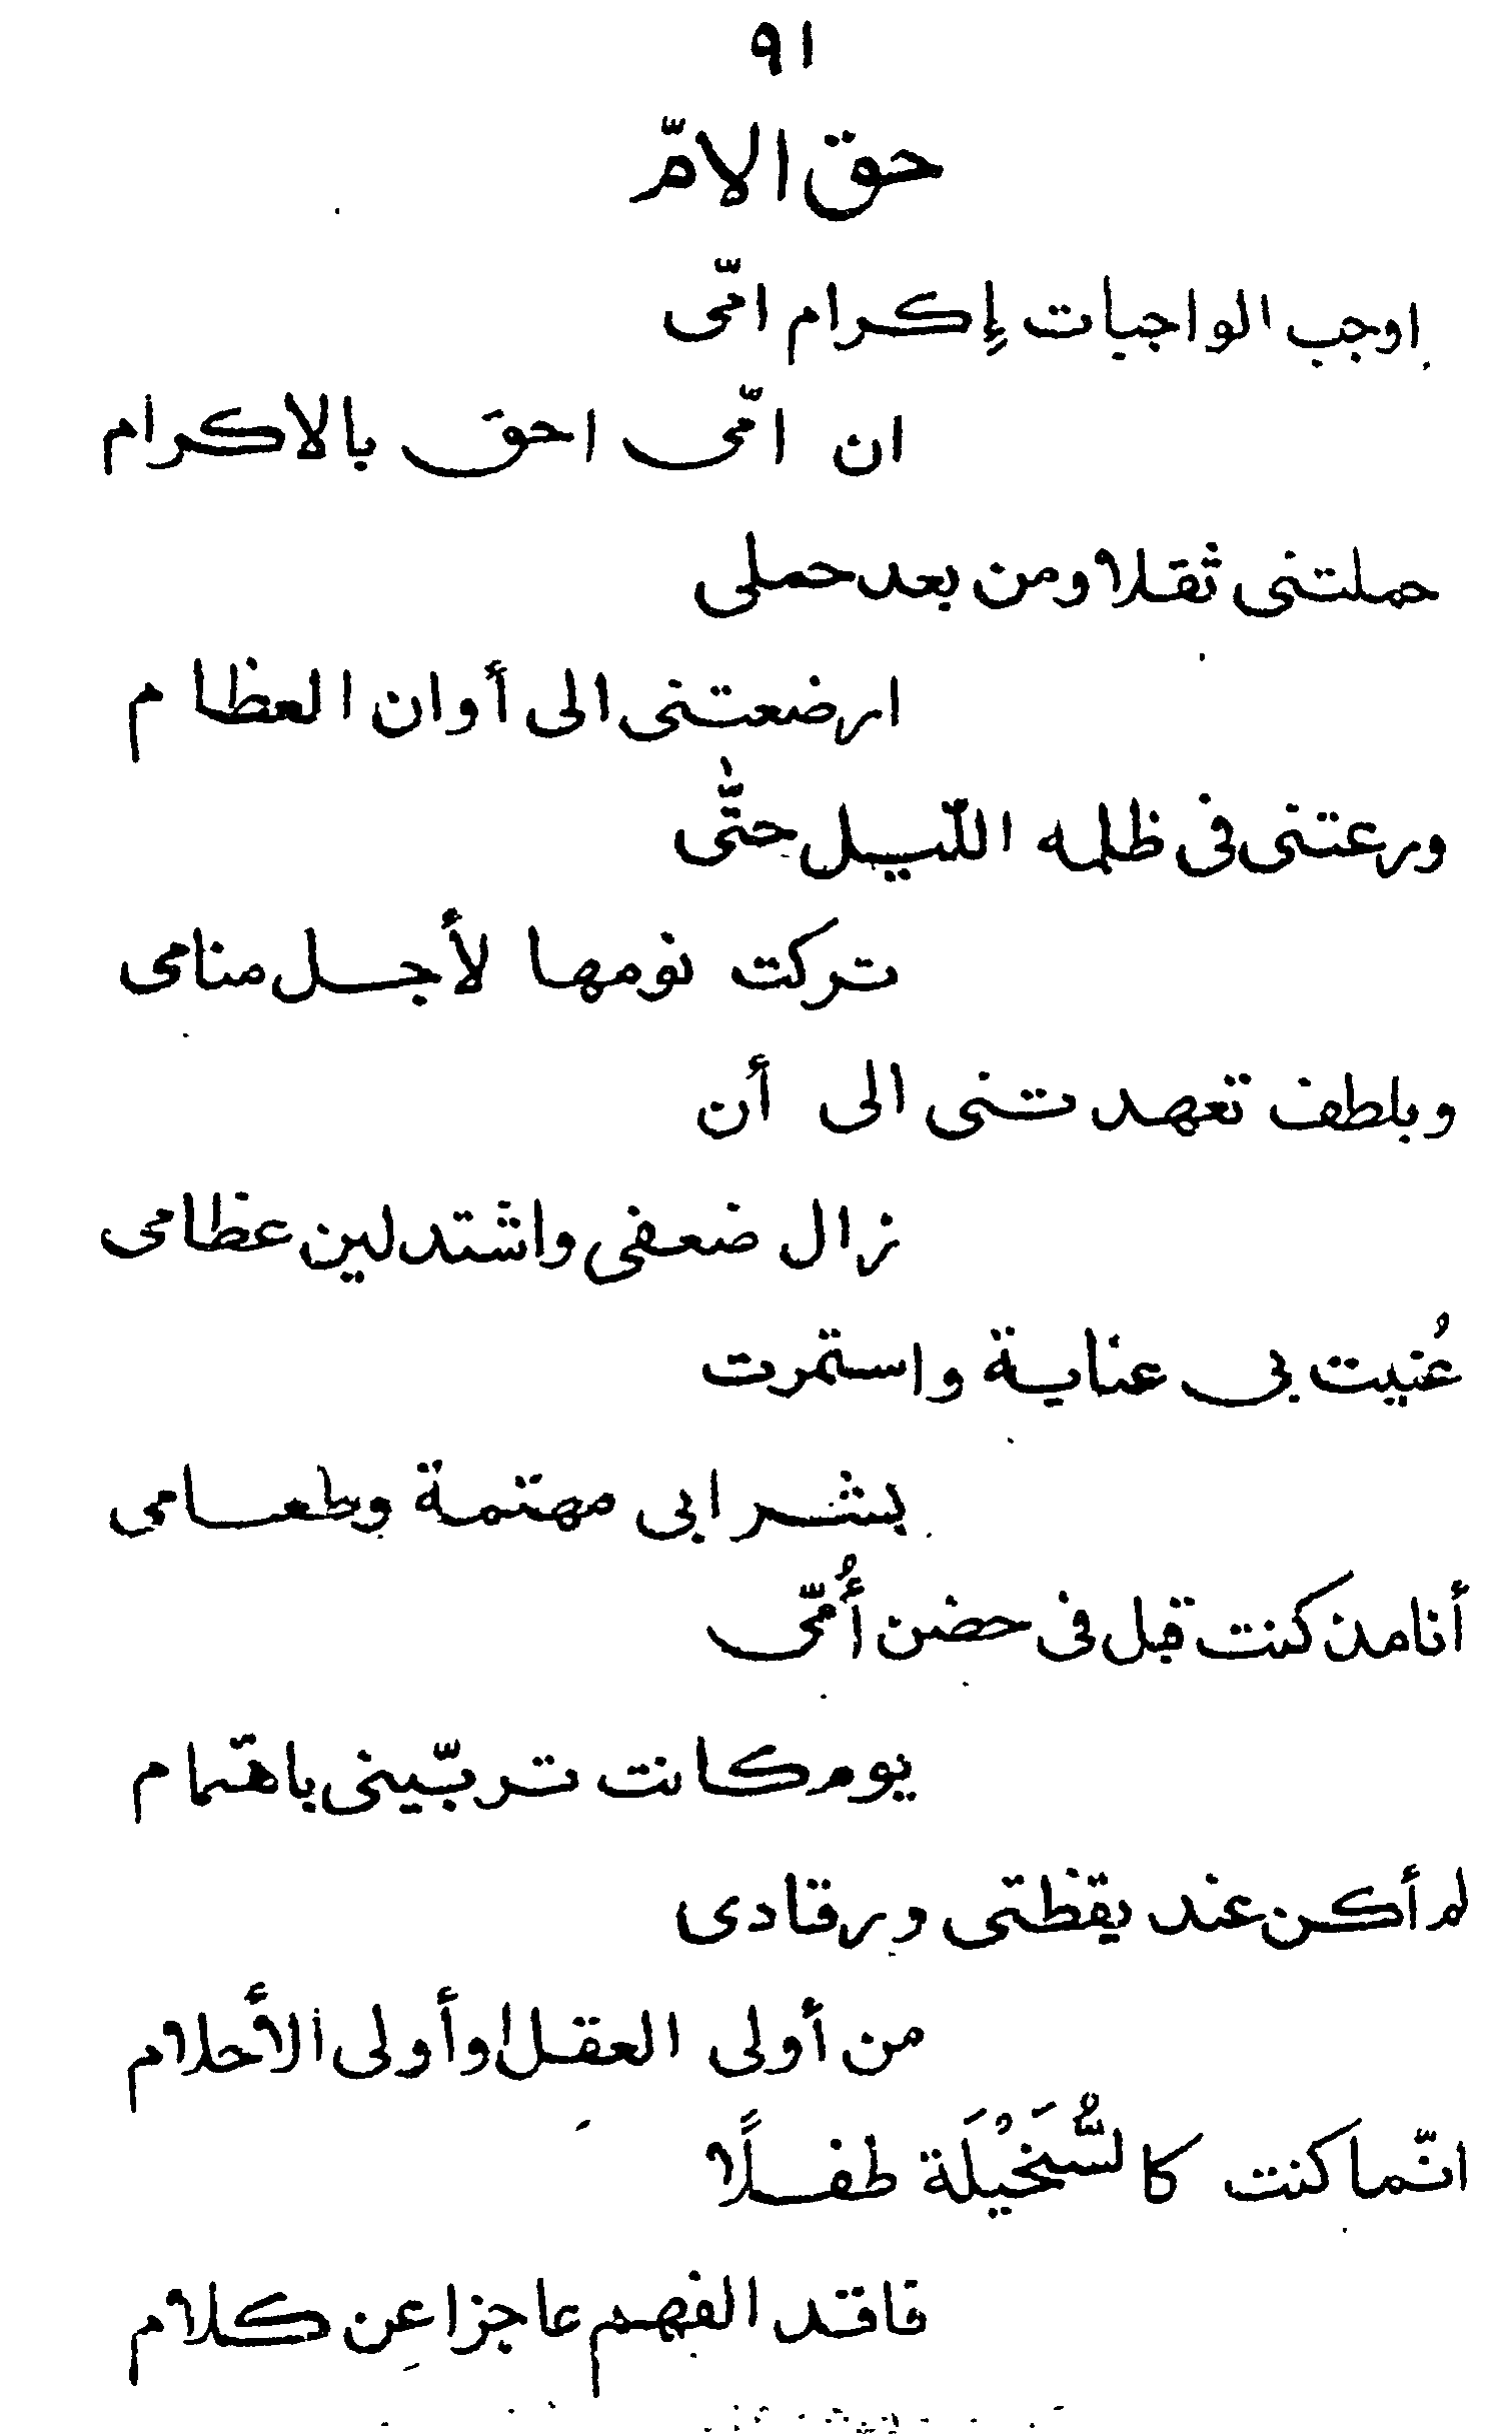 ٩١
حق الامّ
اوجب الواجبات إكرام امّى
ان امّى احق بالاكرام
حملتنى ثقلا ومن بعد حملى
ارضعتنى الى أوان العظام
ورعتنى فى ظلمه اللّيل حتّٰى
تركت نومها لأجل منامى
وبلطف تعهدتنى الى أن
زال ضعفى واشتد لين عظامى
عُنيت بى عناية واستمرت
بشرابى مهتمة وطعامى
أنا مذ كنت قبل فى حضن أُمّى
يوم كانت تربّينى باهتمام
لم أكن عند يقظتى ورقادى
من أولى العقل اوأولى الأحلام
انّما كنت كالسُّخَيْلَة طفلًا
فاقد الفهم عاجزا عن كلام